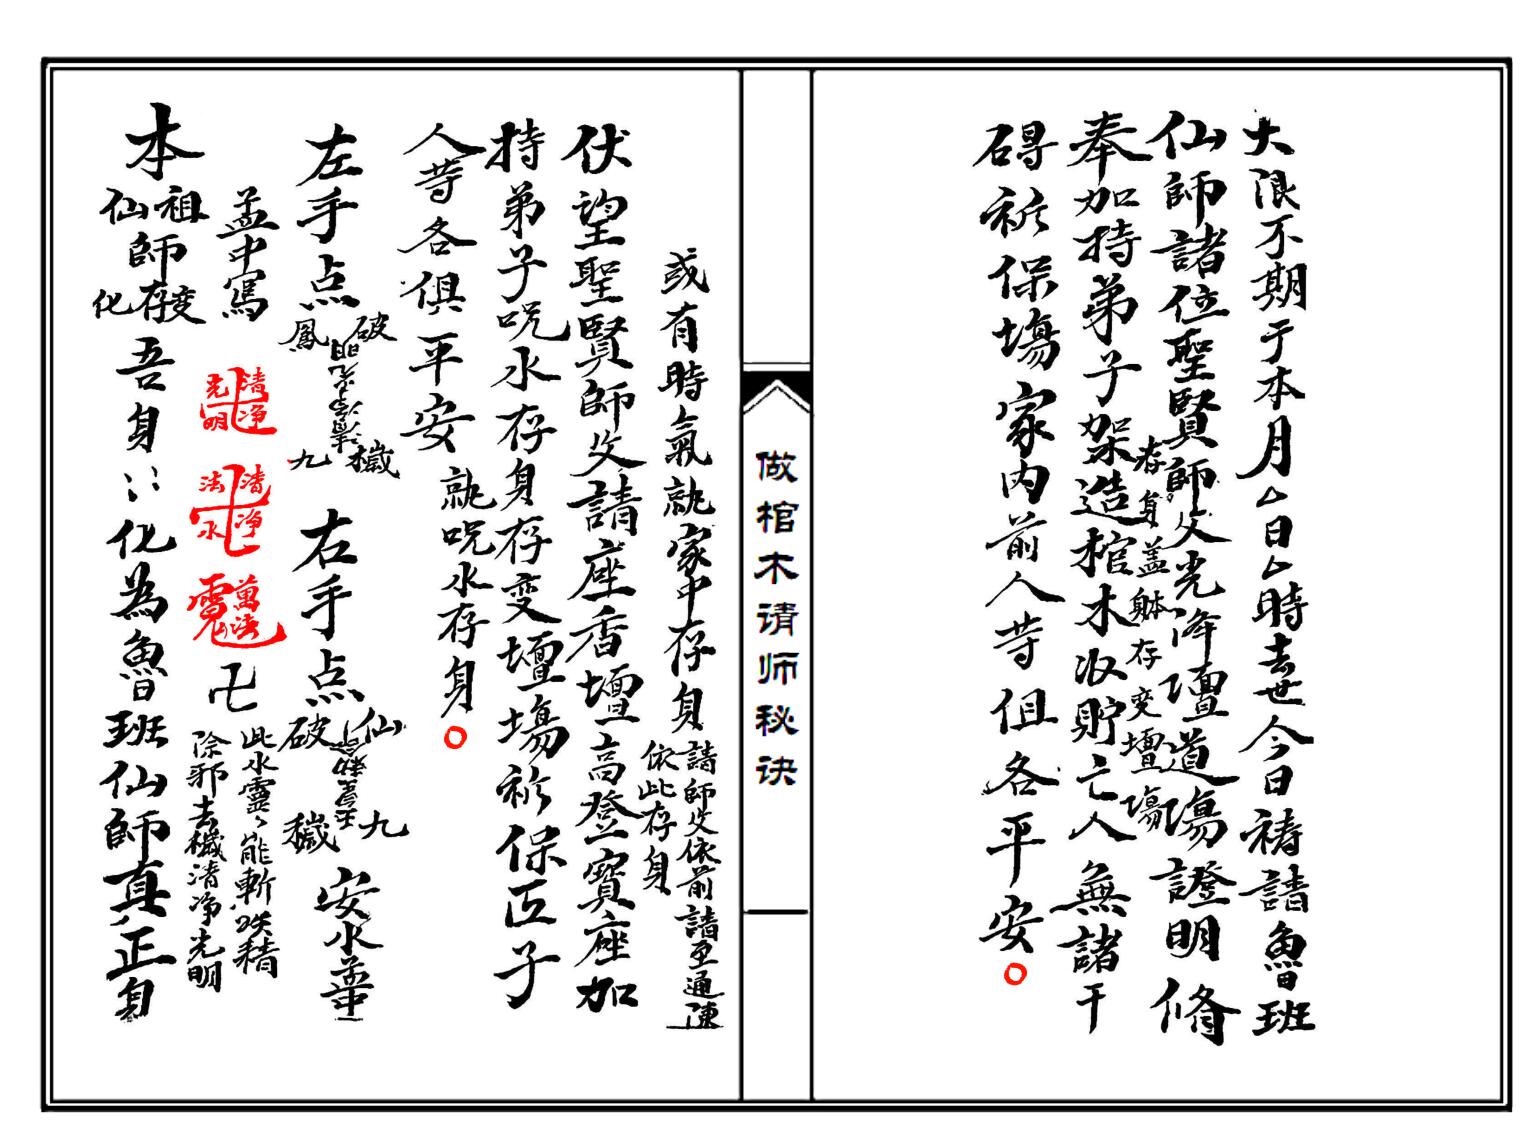 大限不期于本月厶日厶時去世今日禱請魯班
仙師諸位聖賢師父光降壇道場證明修
存身蓋躰存變壇場
奉加持弟子架造棺木収貯亡人無諸干
碍祈保場家內前人等但各平安
做棺木请师秘诀
或有時氣就家中存身
請師父依前請至通陳
依此存身
伏望聖賢師父請座香壇高登寶座加
持弟子咒水存身存变壇場祈保匠子
人等各俱平安
就咒水存身
左手点
破穢
鳳九
右手点
仙九
破穢
安水盂中
盂中寫
清净光明
清净法水
萬法
卍
此水靈〻能斬妖精
除邪去穢清净光明
本祖師存变
仙化
吾身〻〻化為魯班仙師真正身